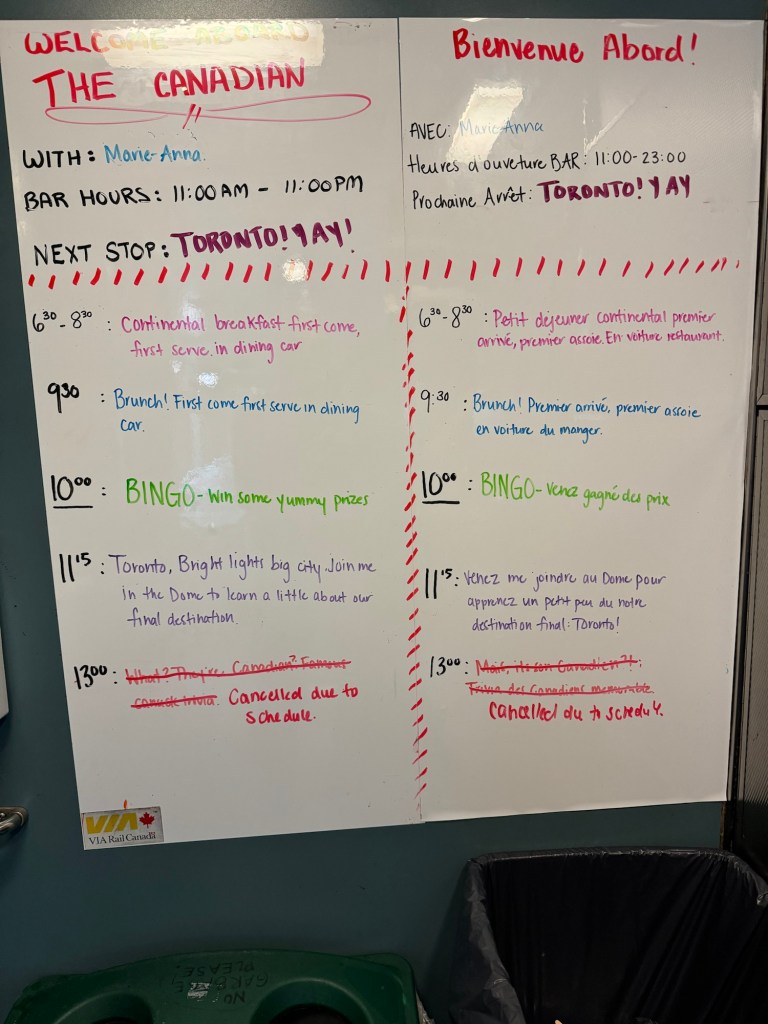 WELCOME ABOARD
THE CANADIAN
WITH: Marie-Anna.
BAR HOURS: 11:00AM - 11:00PM
NEXT STOP: TORONTO! YAY!
6³⁰ - 8³⁰ : Continental breakfast first come,
first serve. in dining car
9³⁰ : Brunch! First come first serve in dining
car.
10⁰⁰ : BINGO - Win some yummy prizes
11¹⁵ : Toronto, Bright lights big city. Join me
in the Dome to learn a little about our
final destination.
13⁰⁰ : What? They're Canadian? Famous
canuck trivia. Cancelled due to
schedule.
VIA
VIA Rail Canada
Bienvenue Abord!
AVEC: Marie-Anna
Heures d'ouveture BAR: 11:00-23:00
Prochaine Arrêt: TORONTO! YAY
6³⁰ - 8³⁰ : Petit déjeuner continental premier
arrivé, premier assoie. En voiture restaurant.
9:³⁰ : Brunch! Premier arrivé, premier assoie
en voiture du manger.
10⁰⁰ : BINGO - Venez gagné des prix
11¹⁵ : Venez me joindre au Dome pour
apprenez un petit peu du notre
destination final: Toronto!
13⁰⁰ : Mais, ils son Canadien?!
Trivia des Canadiens memorable
Cancelled du to schedul.
NO
GARBAGE
PLEASE